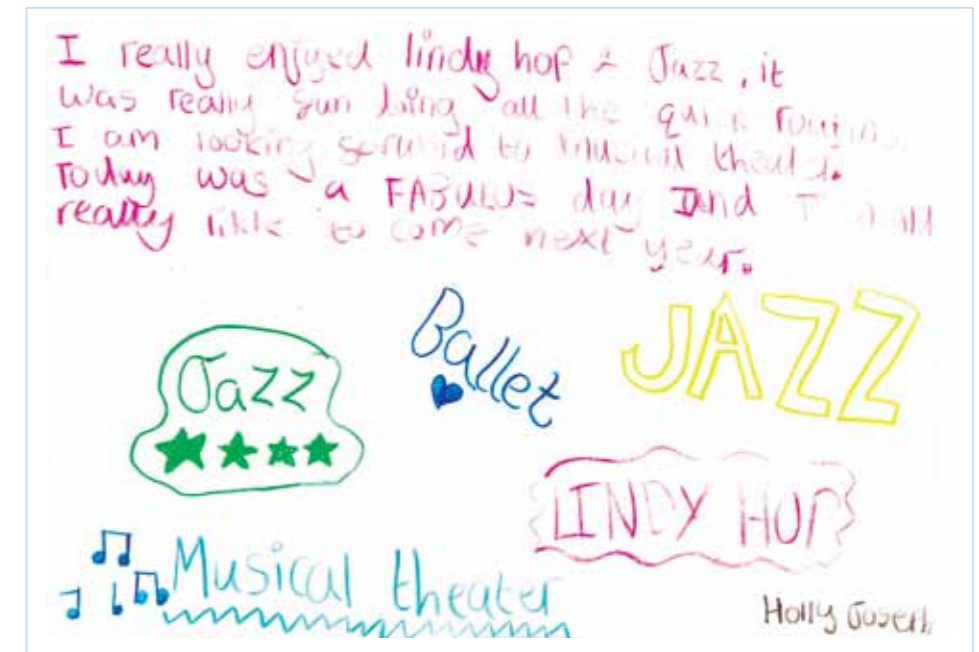 I really enjoyed lindy hop & Jazz, it
was really fun doing all the quick
I am looking forward to musical
Today was a FABULUS day and I
really like to come next year.
Ballet
JAZZ
Jazz
LINDY HOP
Musical theater
Holly Joseph